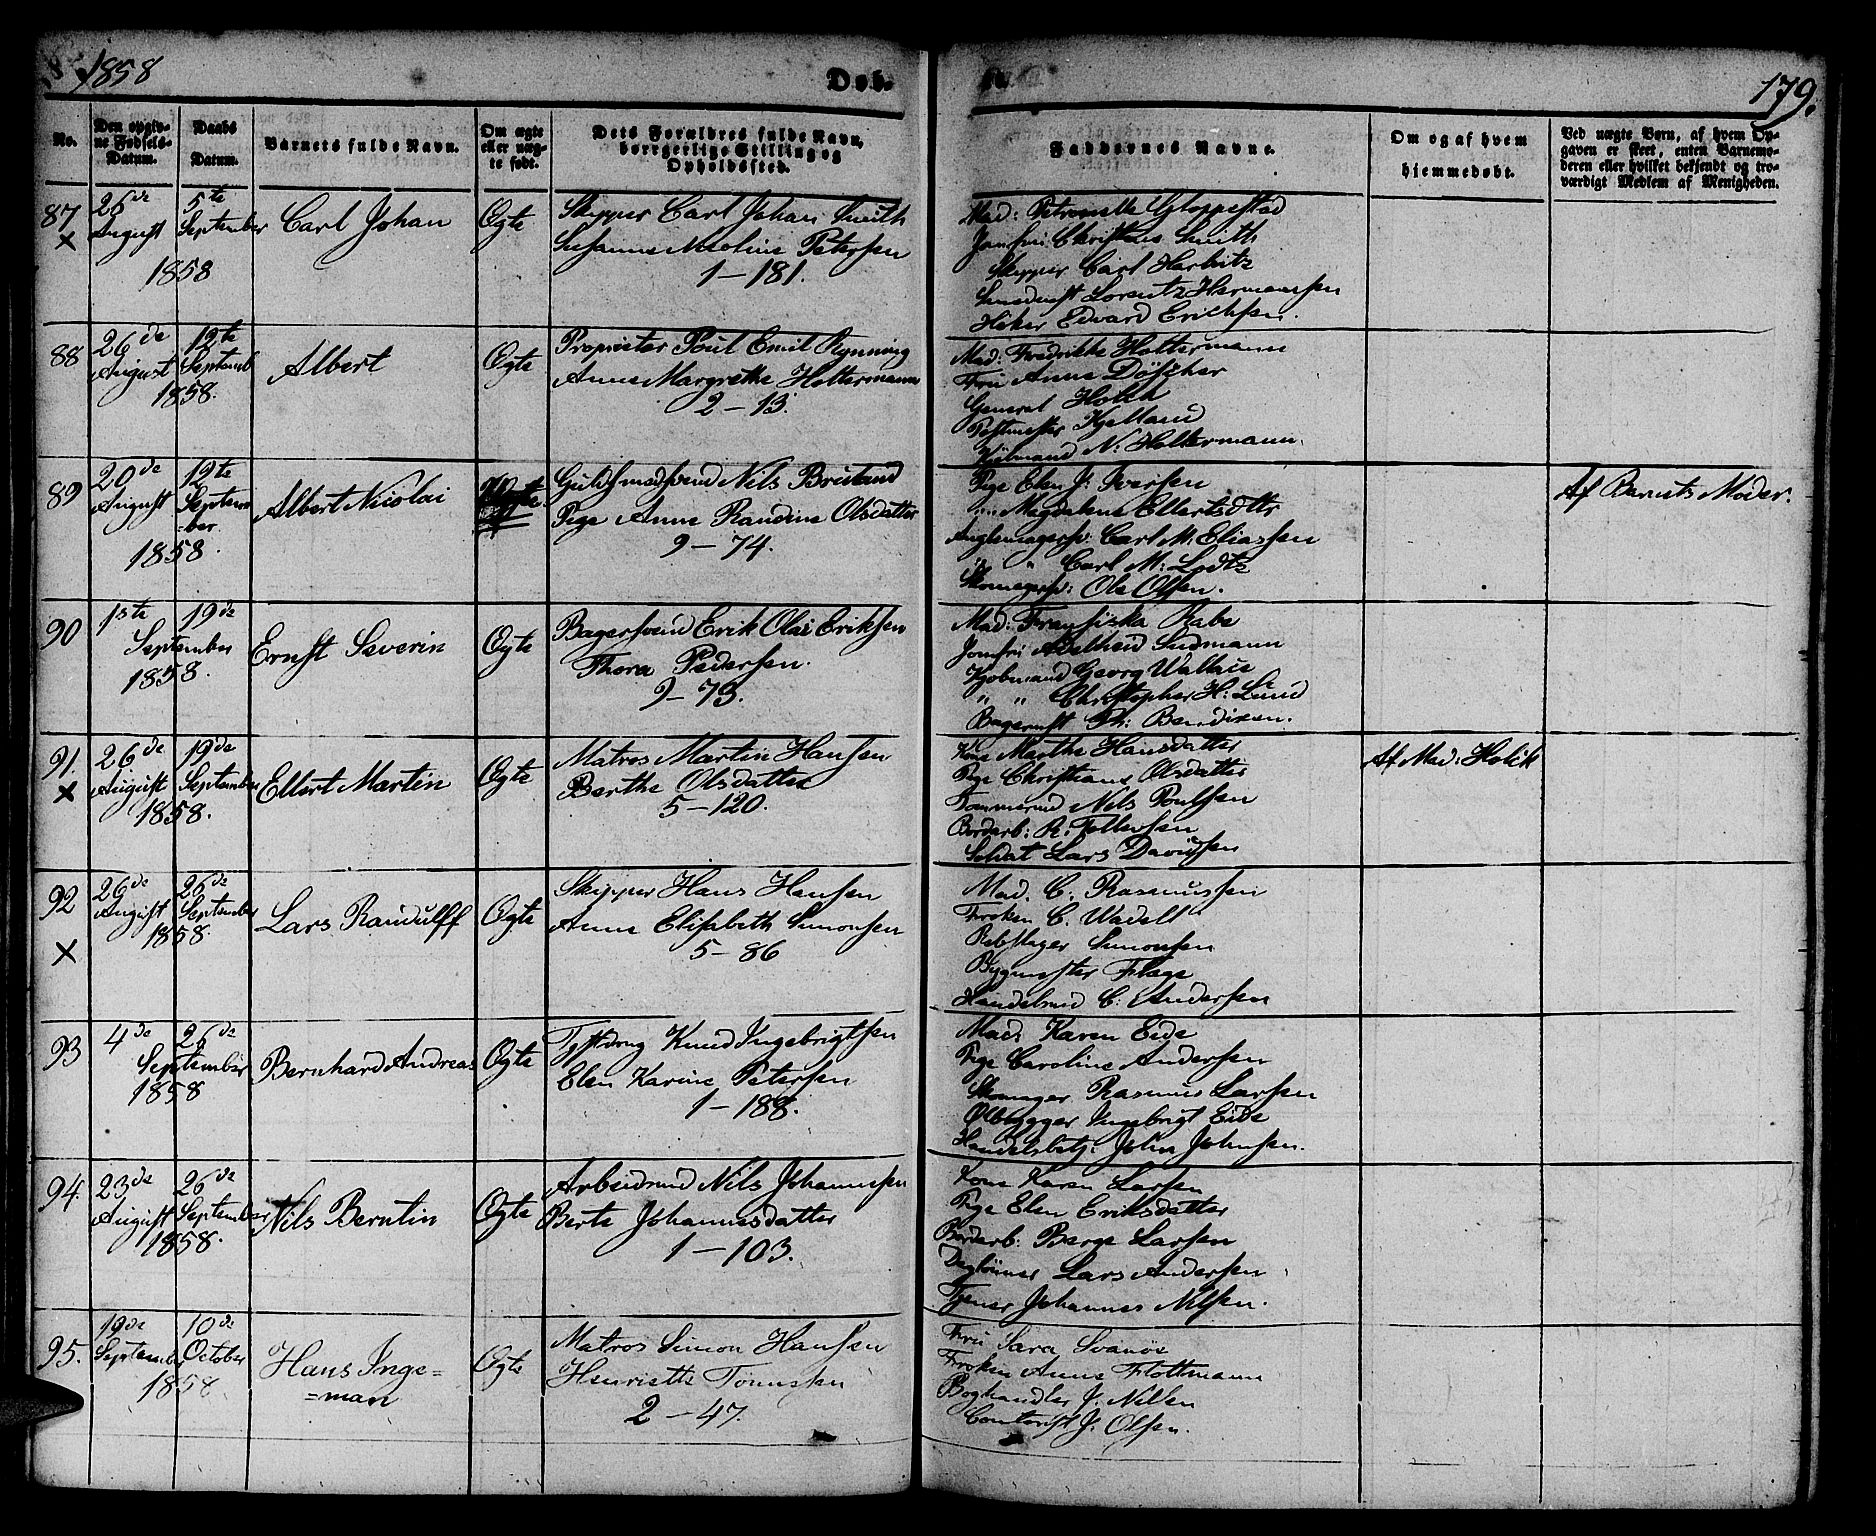 1858
Døb.
179.
No.
Den opgivne Fødsels-Datum.
Daabs Datum.
Barnets fulde Navn.
Om ægte eller uægte født.
Dets Forældres fulde Navn, borgerlige Stilling og Opholdssted.
Faddernes Navne.
Om og af hvem hjemmedøbt.
Ved uægte Børn, af hvem Opgaven er skeet, enten Barnemoderen eller hvilket bekjendt og troværdigt Medlem af Menigheden.
87
×
26de August
5te September
1858
Carl Johan
Ægte
Skipper Carl Johan Smith
Susanne Nicoline Petersen
1–181.
Mad: Petronelle Gloppestad
Jomfru Christine Smith
Skipper Carl Harbitz
Smedmst Lorentz Hermansen
Høker Edvard Erichsen.
88
26de August
12te Septemb
1858.
Albert
Ægte
Proprietær Poul Emil Rynning
Anne Margrethe Holtermann
2–13.
Mad: Fredrikke Holtermann
Fru Anne Döscher
General Holck
Postmester Kjelland
Kjøbmand N: Holtermann.
89
20de August
12te September
1858.
Albert Nicolai
Guldsmedsvend Nils Brustand
Pige Anne Randine Olsdatter
9–74.
Pige Elen J: Iversen
" Magdalena Ellertsdttr
Carl M. Eliassen
" " Carl M: Lodtz
Skomagersv: Ole Olsen.
Af Barnets Moder.
90
1ste
19de
September
1858.
Ernst Severin
Ægte
Bagersvend Erik Olai Eriksen
Thora Pedersen.
9–73.
Mad: Fransiska Rabe
Jomfru Adelheid Sudmann
Kjøbmand Georg Wallace
" " Christopher H: Lund
Bagermst Th: Bendixen.
91.
×
26de August
19de September
1858.
Ellert Martin
Ægte
Matros Martin Hansen
Berthe Olsdatter
5–120.
Kone Marthe Hansdatter
Pige Christiane Olsdatter
Tømmermd Nils Poulsen
Borderb: R: Tollefsen
Soldat Lars Davidsen
Af Mad: Holck
92
×
26de August
26de September
1858.
Lars Randulff
Ægte
Skipper Hans Hansen
Anne Elisabeth Simonsen
5–86
Mad. C. Rasmussen
Frøken C. Wadell
Rebslager Simonsen
Bygmester Flage
Handelsmd C. Andersen
93
4de
26de
September
1858
Bernhard Andreas
Ægte
Knud Ingebrigtsen
Elen Karine Petersen
1–188.
Mad: Karen Eide
Pige Caroline Andersen
Skomager Rasmus Larsen
Ølbrygger Ingebrigt Eide
Handelsbetj: John Johnsen.
94.
23de August
26de September
1858.
Nils Berntin
Ægte
Arbeidsmd Nils Johannesen
Berte Johannesdatter
1–103.
Kone Karen Larsen
Pige Elen Eriksdatter
Borderb: Berge Larsen
Lars Andersen
Tjener Johannes Nilsen.
95.
19de Septemb
10de October
1858
Hans Inge=
=man
Ægte
Matros Simon Hansen
Henriette Tönnesen
2–47.
Fru Sara Svanøe
Frøken Anne Flottmann
Boghandler J. Nilsen
Contorist J. Olsen.